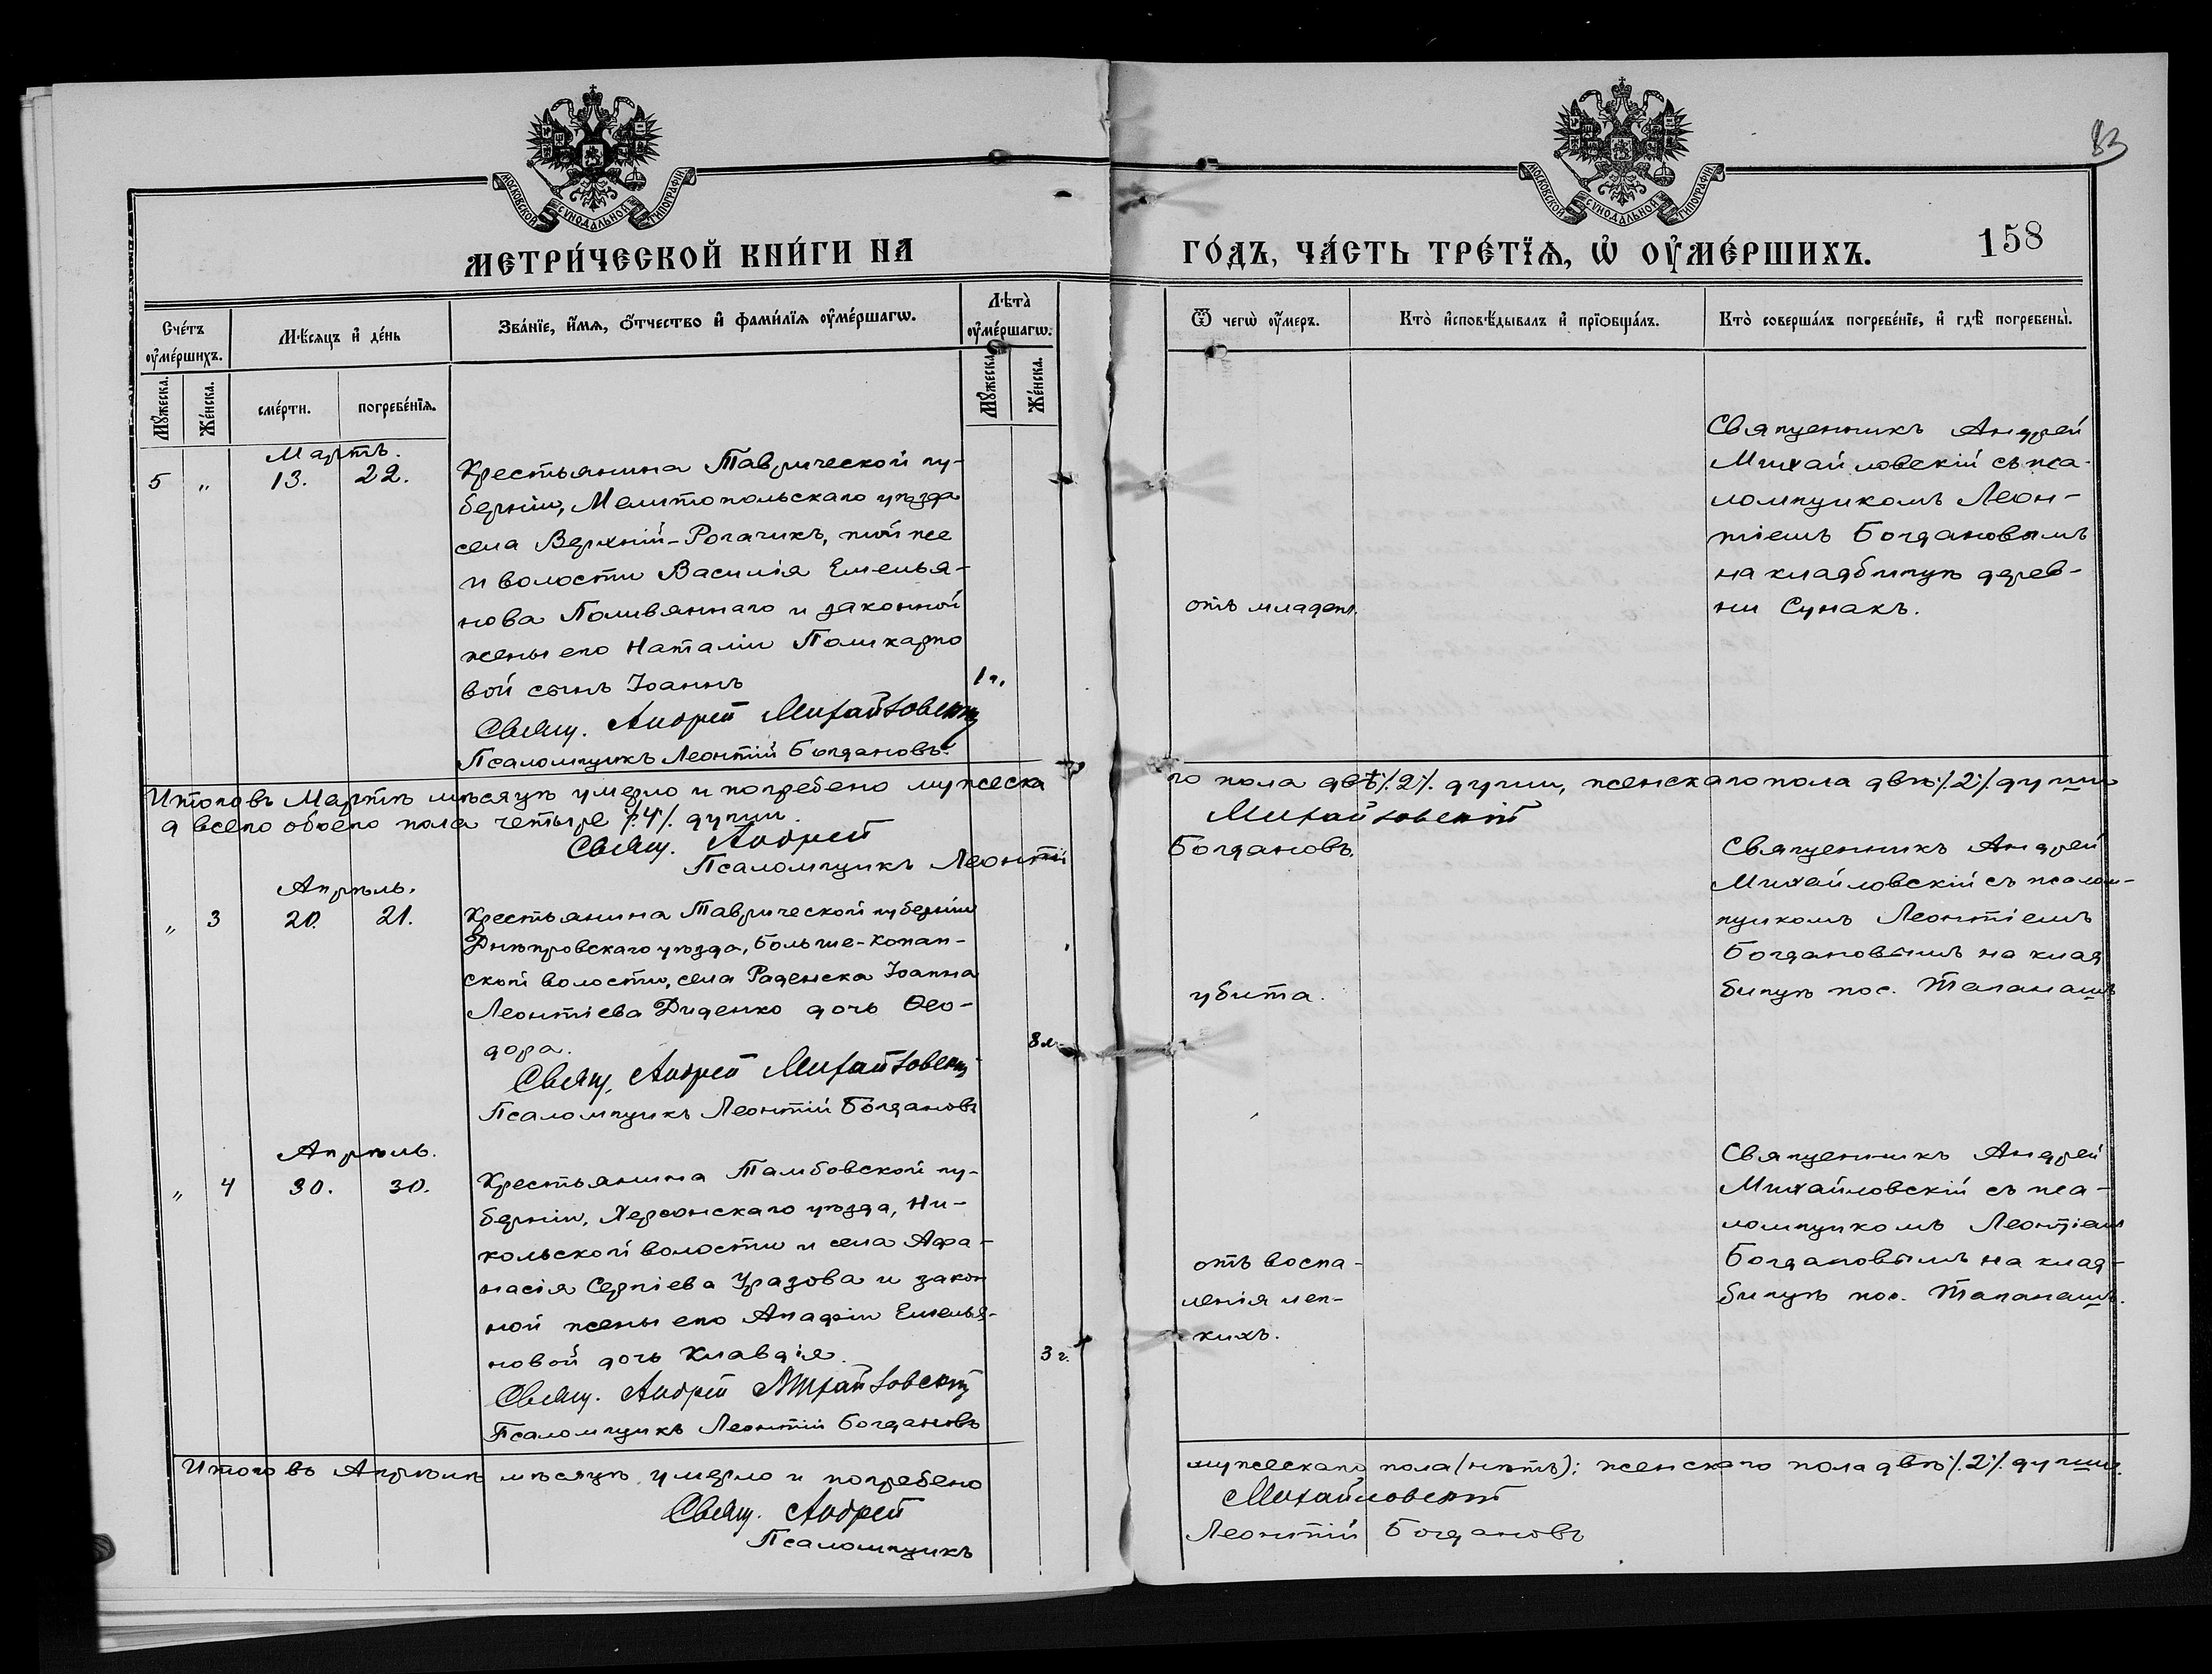 83
МОСКОВСКОЙ СѴНОДАЛЬНОЙ ТИПОГРАФІИ
МОСКОВСКОЙ СѴНОДАЛЬНОЙ ТИПОГРАФІИ
МЕТРИ́ЧЕСКОЙ КНИ́ГИ НА
ГО́ДЪ, ЧА́СТЬ ТРЕ́ТЇѦ, Ѡ҆ ОУ҆МЕ́РШИХЪ.
158
Сче́тъ оу҆ме́ршихъ.
Мѣ́сяцъ и҆ де́нь
Зва́нїе, и҆́мѧ, ѻ҆́тчество и҆ фами́лїѧ оу҆ме́ршагѡ.
Лѣта̀ оу҆ме́ршагѡ.
Ѿ чегѡ̀ оу҆́меръ.
Кто̀ и҆сповѣ́дывалъ и҆ прїѡбща́лъ.
Кто̀ соверша́лъ погребе́нїе, и҆ гдѣ̀ погребены̀.
Мꙋ́жеска.
Же́нска.
сме́рти.
погребе́нїѧ.
Мꙋ́жеска.
Же́нска.
Мартъ.
5 „ 13. 22.
Крестьянина Таврической гу-
берніи, Мелитопольскаго уѣзда
села Верхній-Рогачикъ, той же
и волости Василія Емелья-
нова Поливяннаго и законной
жены его Наталіи Поликарпо
вой сынъ Іоаннъ
1 г.
Свящ. Андрей Михайловскій
Псаломщикъ Леонтій Богдановъ.
отъ младен.
Священникъ Андрей
Михайловскій съ пса-
ломщикомъ Леон-
тіемъ Богдановымъ
на кладбищѣ дерев-
ни Сунакъ.
Итого въ Мартѣ мѣсяцѣ умерло и погребено мужеска
го пола двѣ ⁒2⁒ души, женскаго пола двѣ ⁒2⁒ души
а всего обоего пола четыре ⁒4⁒ души.
Свящ. Андрей
Михайловскій
Псаломщикъ Леонтій
Богдановъ.
Апрѣль.
„ 3 20. 21.
Крестьянина Таврической губерніи
Днѣпровскаго уѣзда, Больше-Копан-
ской волости, села Раденска Іоанна
Леонтіева Диденко дочь Ѳео-
дора.
8 л.
Свящ. Андрей Михайловскій
Псаломщикъ Леонтій Богдановъ
убита.
Священникъ Андрей
Михайловскій съ псалом-
щикомъ Леонтіемъ
Богдановымъ на клад
бищѣ пос. Таганашъ
Апрѣль.
„ 4 30. 30.
Крестьянина Тамбовской гу-
берніи, Херсонскаго уѣзда, Ни-
кольской волости и села Афа-
насія Сергіева Уразова и закон
ной жены его Агафіи Емелья-
новой дочь Клавдія.
3 г.
Свящ. Андрей Михайловскій
Псаломщикъ Леонтій Богдановъ
отъ воспа-
ленія лег-
кихъ.
Священникъ Андрей
Михайловскій съ пса-
ломщикомъ Леонтіемъ
Богдановымъ на клад-
бищѣ пос. Таганашъ.
Итого въ Апрѣлѣ мѣсяцѣ умерло и погребено
мужескаго пола (нѣтъ); женскаго пола двѣ ⁒2⁒ души.
Свящ. Андрей
Михайловскій
Псаломщикъ
Леонтій Богдановъ